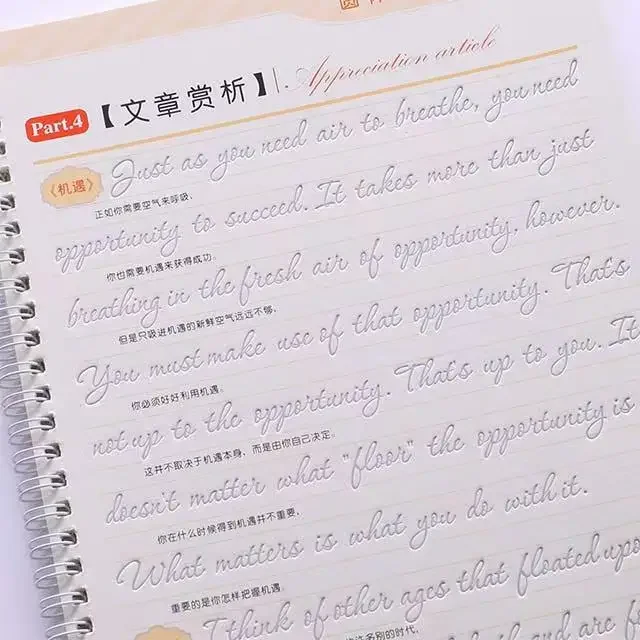 Part.4 【文章赏析】 Appreciation article
《机遇》 Just as you need air to breathe, you need
正如你需要空气来呼吸,
opportunity to succeed. It takes more than just
你也需要机遇来获得成功.
breathing in the fresh air of opportunity, however.
但是只吸进机遇的新鲜空气远远不够,
You must make use of that opportunity. That's
你必须好好利用机遇.
not up to the opportunity. That's up to you. It
这并不取决于机遇本身, 而是由你自己决定.
doesn't matter what "floor" the opportunity is
你在什么时候得到机遇并不重要,
What matters is what you do with it.
重要的是你怎样把握机遇.
I think of other ages that floated upo
许多别的时代,
and are f